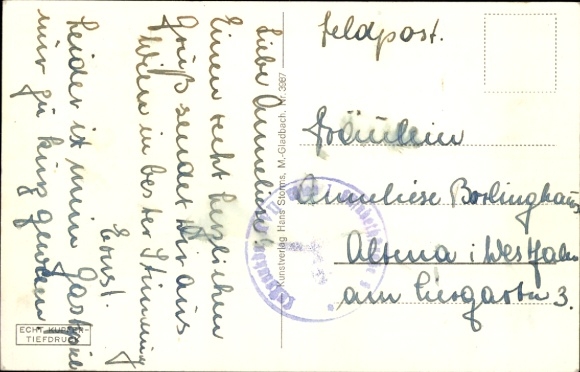 Liebe Anneliese!
Einen recht herzlichen
Gruß sendet Dir aus
Wien in bester Stimmung
Ernst.
Leider ist mein
nur zu kurz
Feldpost.
Fräulein
Anneliese Borlinghaus
Altena i. Westfalen
am Tiergarten 3.
Kunstverlag Hans Storms, M.-Gladbach. Nr. 3967
ECHT KUPFER-
TIEFDRUCK